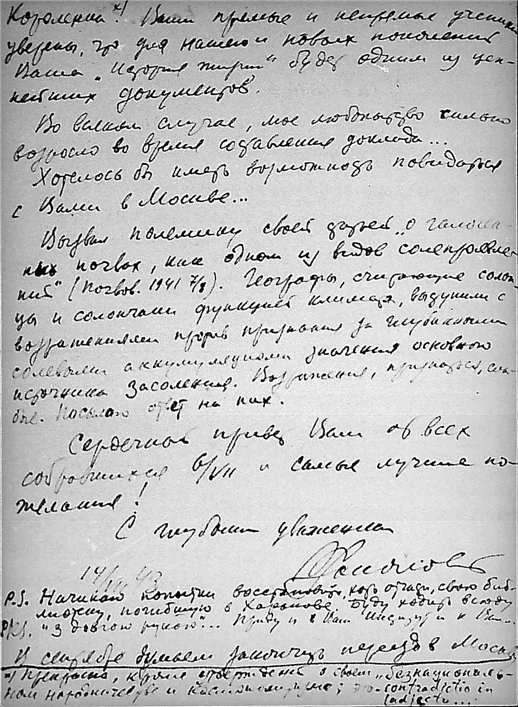 Короленко x) Ваши прямые и непрямые ученики
уверены, что для нашего и новых поколений
Ваша „История жизни" будет одним из цен-
нейших документов.
Во всяком случае, мое любопытство сильно
возросло во время составления доклада...
Хотелось бы иметь возможность повидаться
с Вами в Москве...
Вызвал полемику своей статьей „о галоген-
ных почвах, как одном из видов солепроявле-
ний" (Почвов. 1941 7/8). Географы, считающие солон-
цы и солончаки функцией климата, выдумали с
возражениями против признания за глубинными
солевыми аккумуляциями значения основного
источника засоления. Возражения, признаться, сла-
бые. Посылаю ответ на них.
Сердечный привет Вам от всех
собравшихся 6/VII и самые лучшие по-
желания!
С глубоким уважением
14/VII 43
P.S. Начинаю попытки восстановить, хоть отчасти, свою биб-
лиотеку, погибшую в Харькове. Буду ходить всюду
„з довгою рукою"... Приду и к Вам
В сентябре думаем закончить переезд в Москву
x) Прекрасно, кроме утверждения о своем „безнациональ-
ном народничестве и космополитизме; это contradictio in
adjecto...